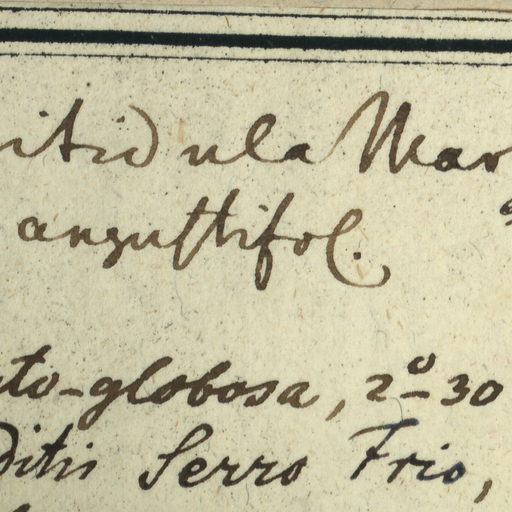 itidula Mar
angustifol.
to-globosa, 2º-30
ditis Serro Frio,